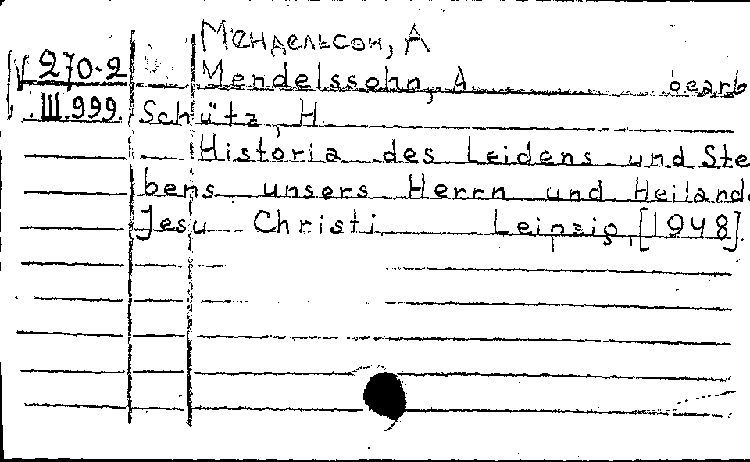 Мендельсон, А
V 270-2
Mendelssohn, A bearb
III 999. Schütz, H
Historia des Leidens und Ste
bens unsers Herrn und Heiland
Jesu Christi Leipzig, [1948].